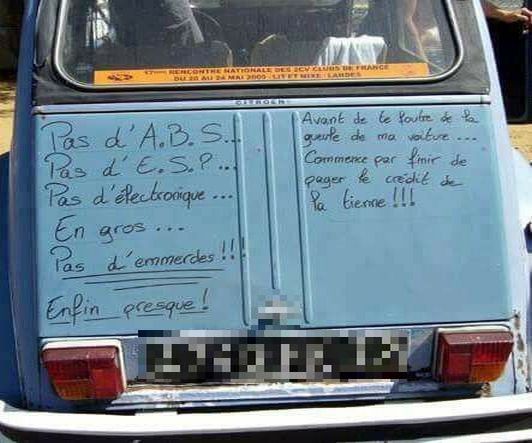 17ème RENCONTRE NATIONALE DES 2CV CLUBS DE FRANCE
DU 20 AU 24 MAI 2009 - LIT ET MIXE - LANDES
CITROËN
Pas d'A.B.S...
Pas d'E.S.P...
Pas d'électronique...
En gros...
Pas d'emmerdes!!!
Enfin presque!
Avant de te foutre de la
gueule de ma voiture...
Commence par finir de
payer le crédit de
la tienne!!!